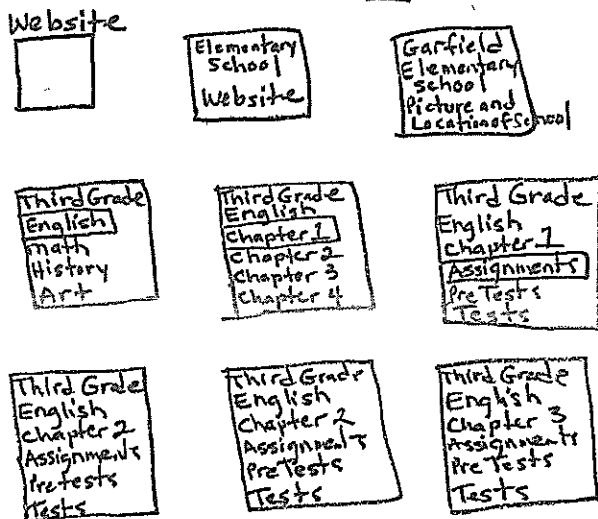 Website
Elementary
School
Website
Garfield
Elementary
School
Picture and
Location of School
Third Grade
English
math
History
Art
Third Grade
English
Chapter 1
Chapter 2
Chapter 3
Chapter 4
Third Grade
English
Chapter 1
Assignments
Pre Tests
Tests
Third Grade
English
Chapter 2
Assignments
Pretests
Tests
Third Grade
English
Chapter 2
Assignments
Pre Tests
Tests
Third Grade
English
Chapter 3
Assignments
Pre Tests
Tests